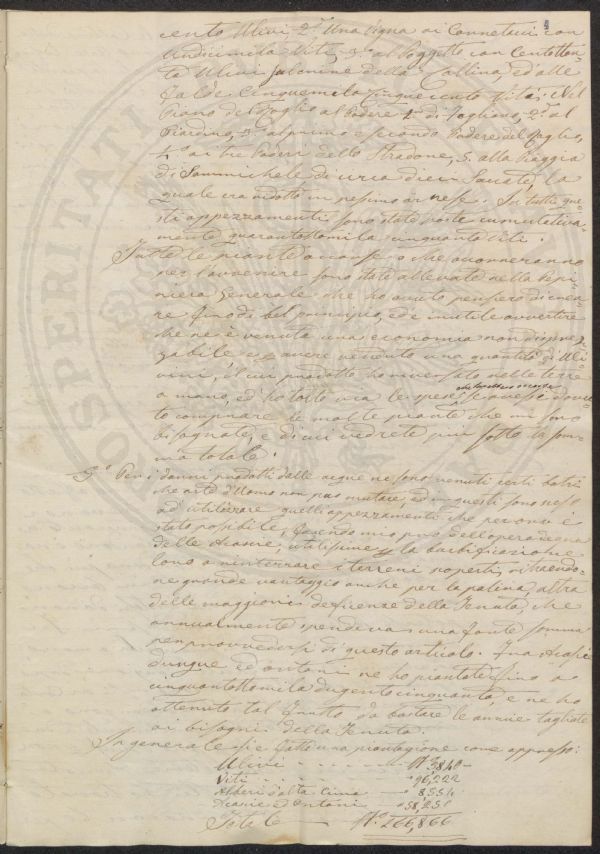 cento Ulivi 2° Una Vigna ai Connetacci con
Undicimila Viti, 3° al Poggetto con Centotton-
ta Ulivi Salcione della Gallina, ed alle
Falde Cinquemila Cinquecento Viti, Nel
Piano del Foglio al Podere 1° di Fogliano, 2° al
Giardino, 3° al primo e secondo Podere del Foglio,
4° ai tre Poderi dello Stradone, 5. alla Piaggia
di Sammichele di circa dieci Saccate, la
quale era ridotta in pessimo arnese. In tutti que-
sti appezzamenti sono state poste cumulativa-
mente quarantottomila cinquanta Viti.
Tutte le piante occorse, o che occorreranno
per l'avvenire sono state allevate nella Pepi-
niera Generale che ho avuto pensiero di crea-
re fino di bel principio, ed è inutile avvertire
che ne è venuta una economia non dispre-
gabile per avere venduto una quantità di Uli-
vini, il cui prodotto ho inversato nelle terre
a mano, ed ho tolto via le spese che sarebbero occorse se avessi dovu-
to comprare le molte piante che mi sono
bisognate, e di cui vedrete più sotto la som-
ma totale.
3° Per i danni prodotti dalle acque ne sono venuti certi botri
che arte d'Uomo non può mutare, ed in questi sono nesso
ad utilizzare quelli appezzamenti che però vi è
stato possibile, facendo mio prò dell'opera degna
delle Acacie, utilissime per la barbificazione
loro a rinterzare i terreni scoperti, ritraendo-
ne grande vantaggio anche per la palina, altra
delle maggiori deficienze della Tenuta, che
annualmente spendeva una forte somma
per provvedersi di questo articolo. Fra Acacie
dunque ed ontani ne ho piantate fino a
cinquantottomila dugentocinquanta, e ne ho
ottenuto tal frutto da bastare le annue tagliate
ai bisogni della Tenuta.
In generale si è fatta una piantagione come appresso:
Ulivi - - - - - N° 3840 -
Viti - - - - - " 96,222
Alberi d'alta cima - " 8554
Acacie ed Ontani - " 58,250
Totale - N° 266,866